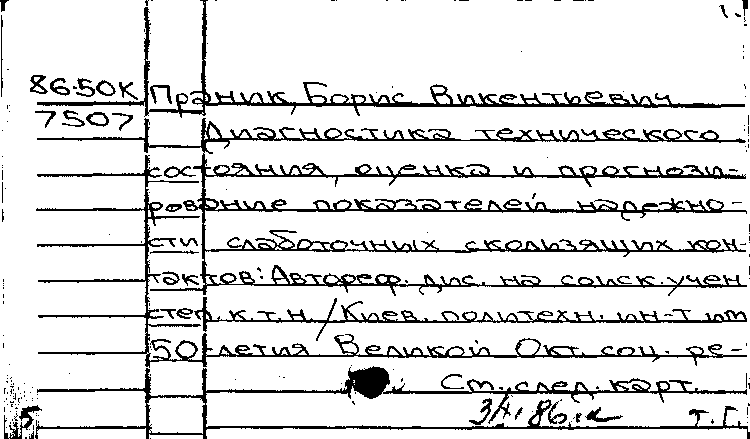 1.
86-50К Праник, Борис Викентьевич
7507 Диагностика технического
состояния, оценка и прогнози-
рование показателей надежно-
сти слаботочных скользящих кон-
тактов: Автореф. дис. на соиск. учен
степ. к.т.н. / Киев. политехн. ин-т им
50-летия Великой Окт. соц. ре-
См. след. карт.
т. Г.